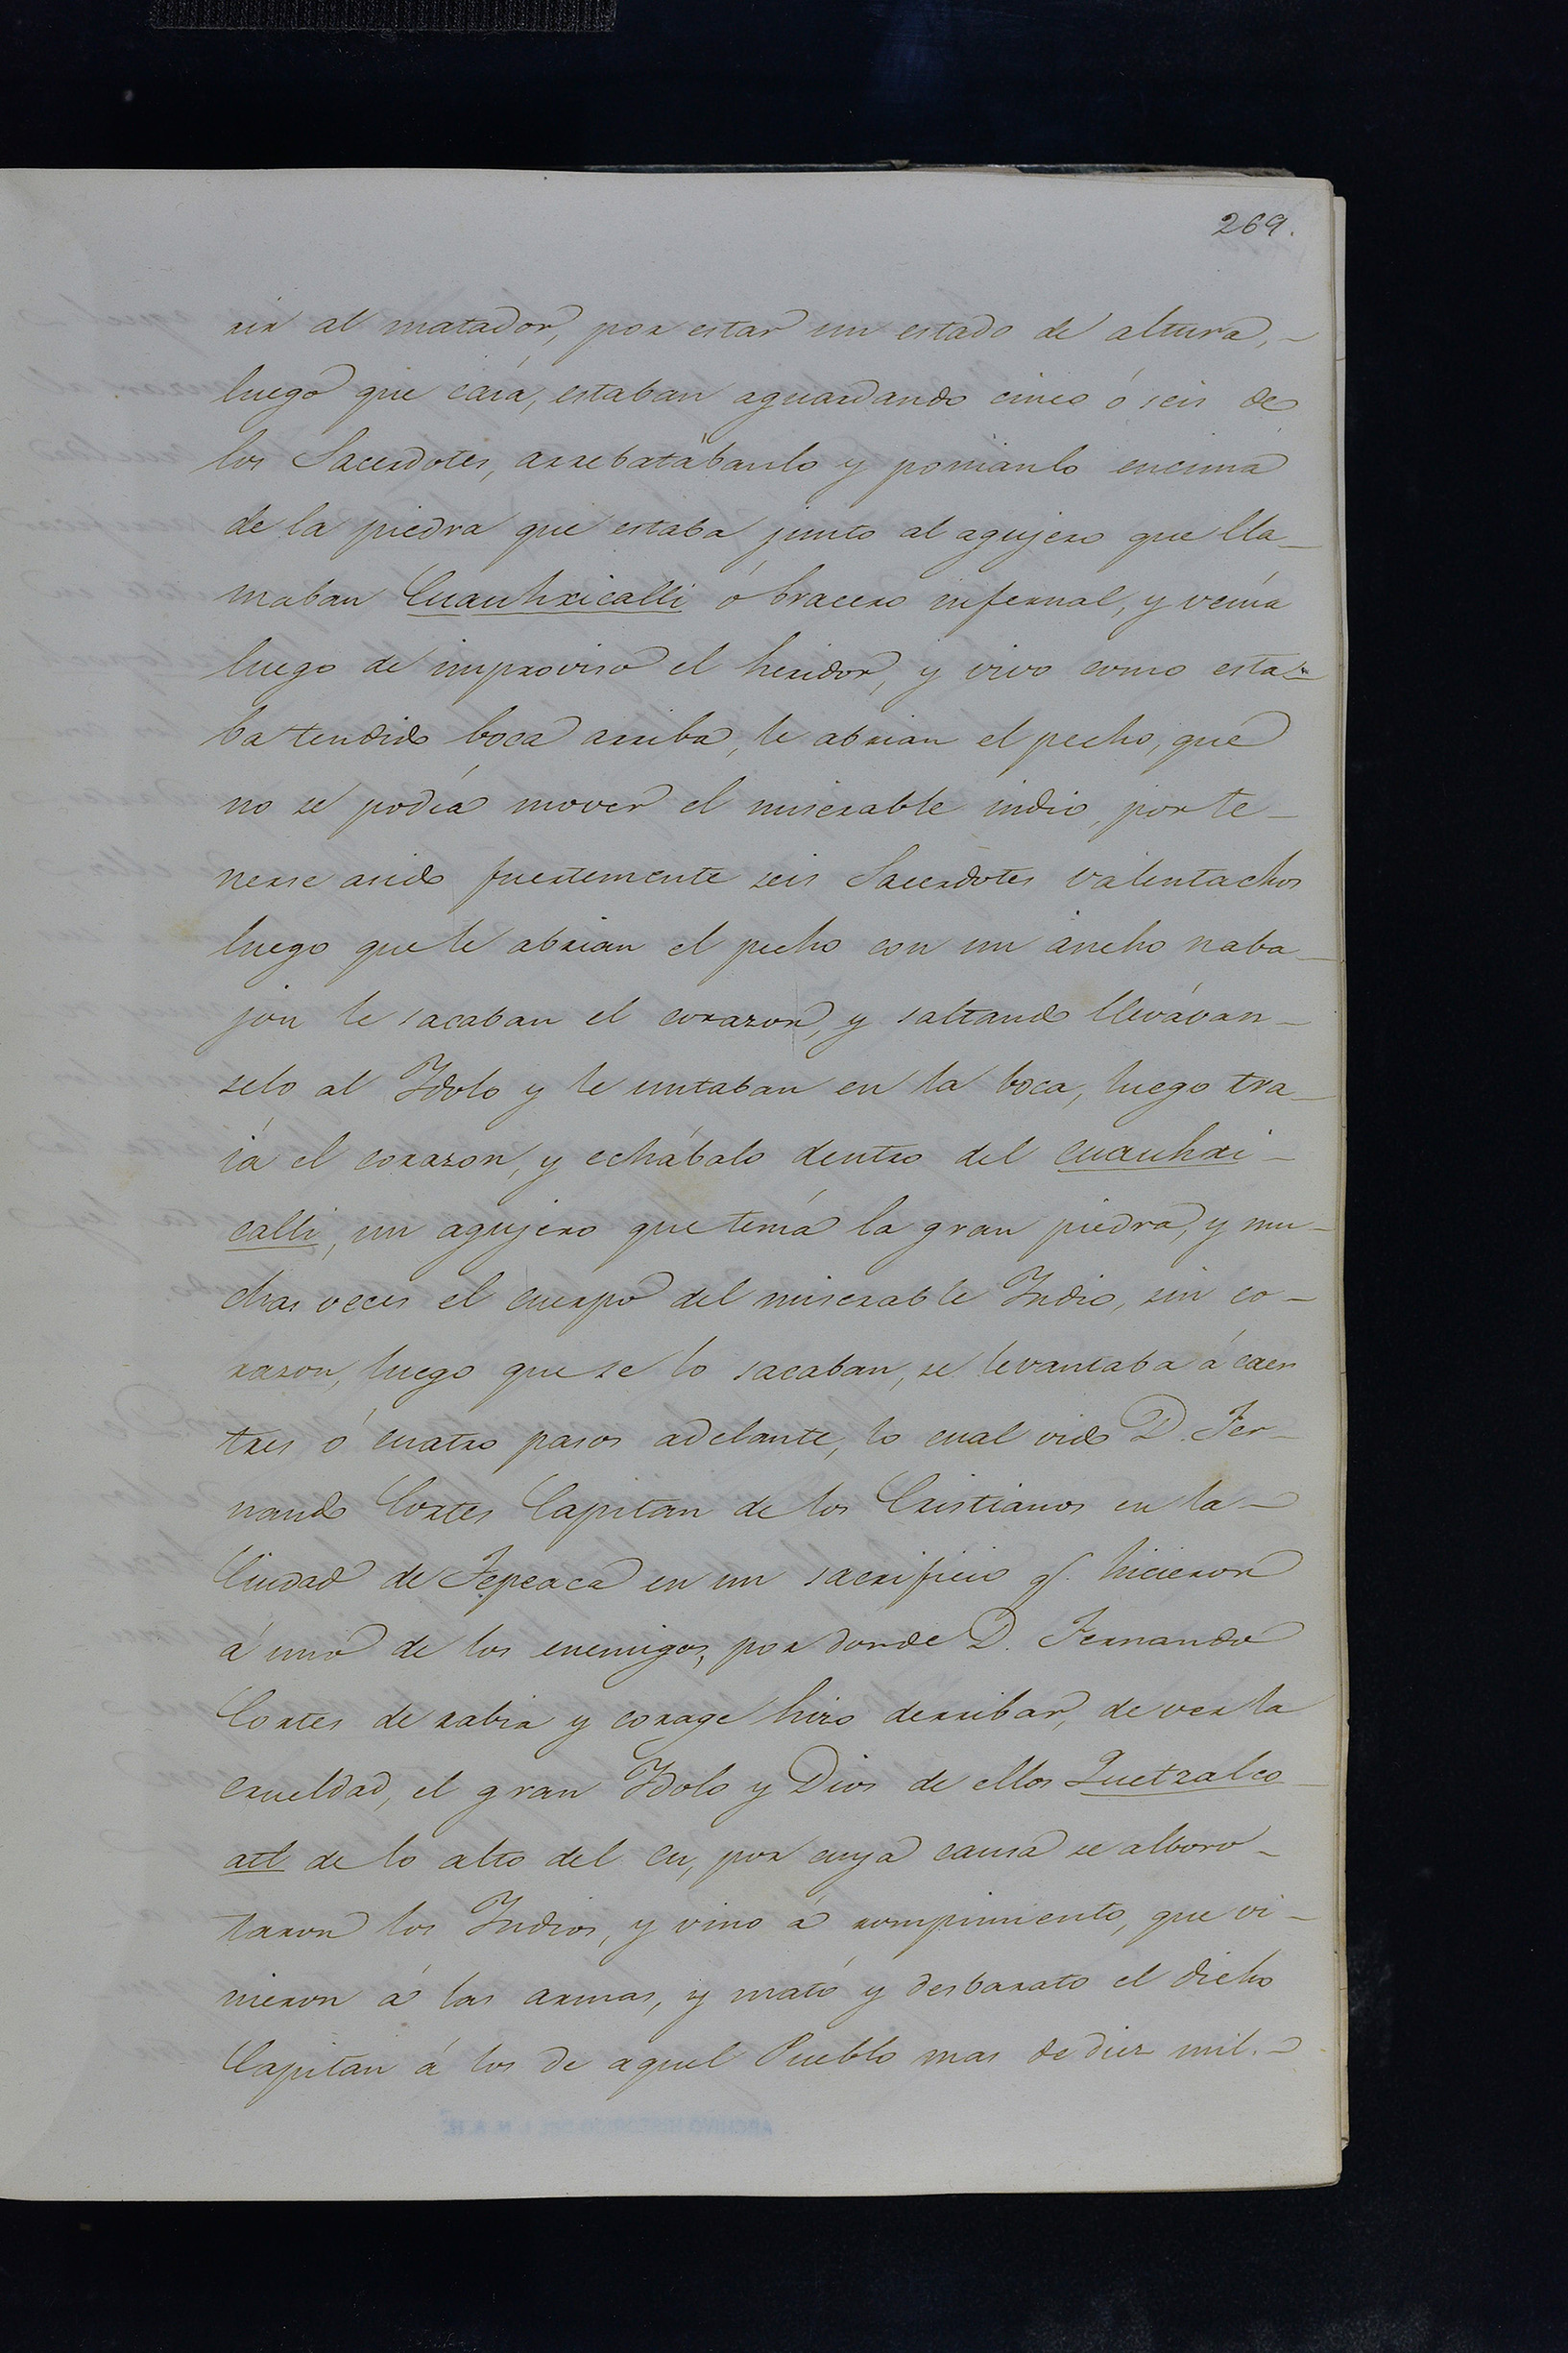 269.
rir al matador, por estar un estado de altura,-
luego que caía, estaban aguardando cinco ó seis de
los Sacerdotes, arrebatábanlo y ponianlo encima
de la piedra que estaba junto al agujero que lla-
maban Cuauhxicalli ó bracero infernal, y venía
luego de improviso el heridor, y vivo como esta-
ba tendido boca arriba, le abrian el pecho, que
no se podía mover el miserable indio, por te-
nerse asido fuertemente seis Sacerdotes valentachos
luego que le abrian el pecho con un ancho naba-
jon le sacaban el corazon, y saltando llevávan-
selo al Idolo y le untaban en la boca, luego tra-
ía el corazon, y echábalo dentro del cuauhxi-
calli, un agujero que tenía la gran piedra, y mu-
chas veces el cuerpo del miserable Indio, sin co-
razon, luego que se lo sacaban, se levantaba á caer
tres ó cuatro pasos adelante, lo cual vido D. Fer-
nando Cortes Capitan de los Cristianos en la-
Ciudad de Tepeaca en un sacrificio q.e hicieron
á uno de los enemigos, por donde D. Fernando
Cortes de rabia y corage hizo derribar, de ver la
crueldad, el gran Idolo y Dios de ellos Quetzalco-
atl de lo alto del Cu, por cuya causa se alboro-
taron los Indios, y vino á rompimiento, que vi-
nieron á las armas, y mató y desbarato el dicho
Capitan á los de aquel Pueblo mas de diez mil.-